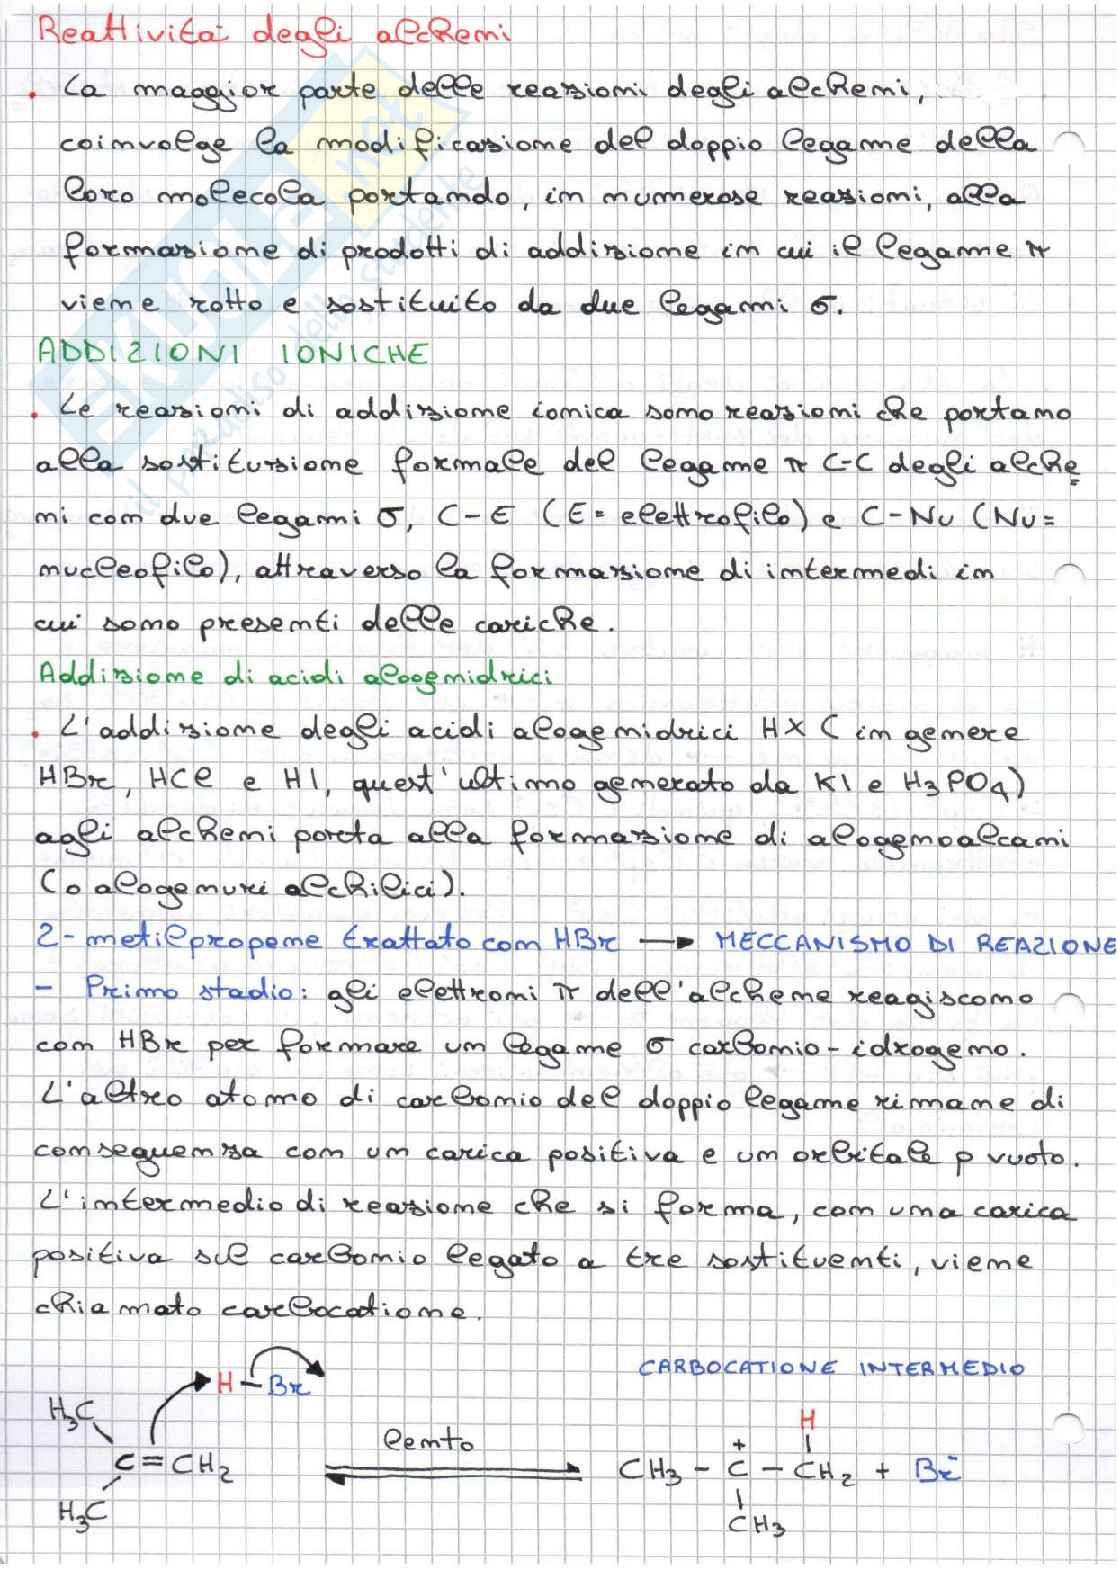 Reattività degli alcheni
. La maggior parte delle reazioni degli alcheni,
coinvolge la modificazione del doppio legame della
loro molecola portando, in numerose reazioni, alla
formazione di prodotti di addizione in cui il legame π
viene rotto e sostituito da due legami σ.
ADDIZIONI IONICHE
. Le reazioni di addizione ionica sono reazioni che portano
alla sostituzione formale del legame π C-C degli alche
ni con due legami σ, C-E (E= elettrofilo) e C-Nu (Nu=
nucleofilo), attraverso la formazione di intermedi in
cui sono presenti delle cariche.
Addizione di acidi alogenidrici
. L'addizione degli acidi alogenidrici HX ( in genere
HBr, HCl e HI, quest'ultimo generato da KI e H3PO4)
agli alcheni porta alla formazione di alogenoalcani
(o alogenuri alchilici).
2-metilpropene trattato con HBr → MECCANISMO DI REAZIONE
- Primo stadio: gli elettroni π dell'alchene reagiscono
con HBr per formare un legame σ carbonio-idrogeno.
L'altro atomo di carbonio del doppio legame rimane di
conseguenza con un carica positiva e un orbitale p vuoto.
L'intermedio di reazione che si forma, con una carica
positiva sul carbonio legato a tre sostituenti, viene
chiamato carbocatione.
CARBOCATIONE INTERMEDIO
H-Br
H3C
H
lento
+
C=CH2
CH3-C-CH2 + Br-
H3C
CH3